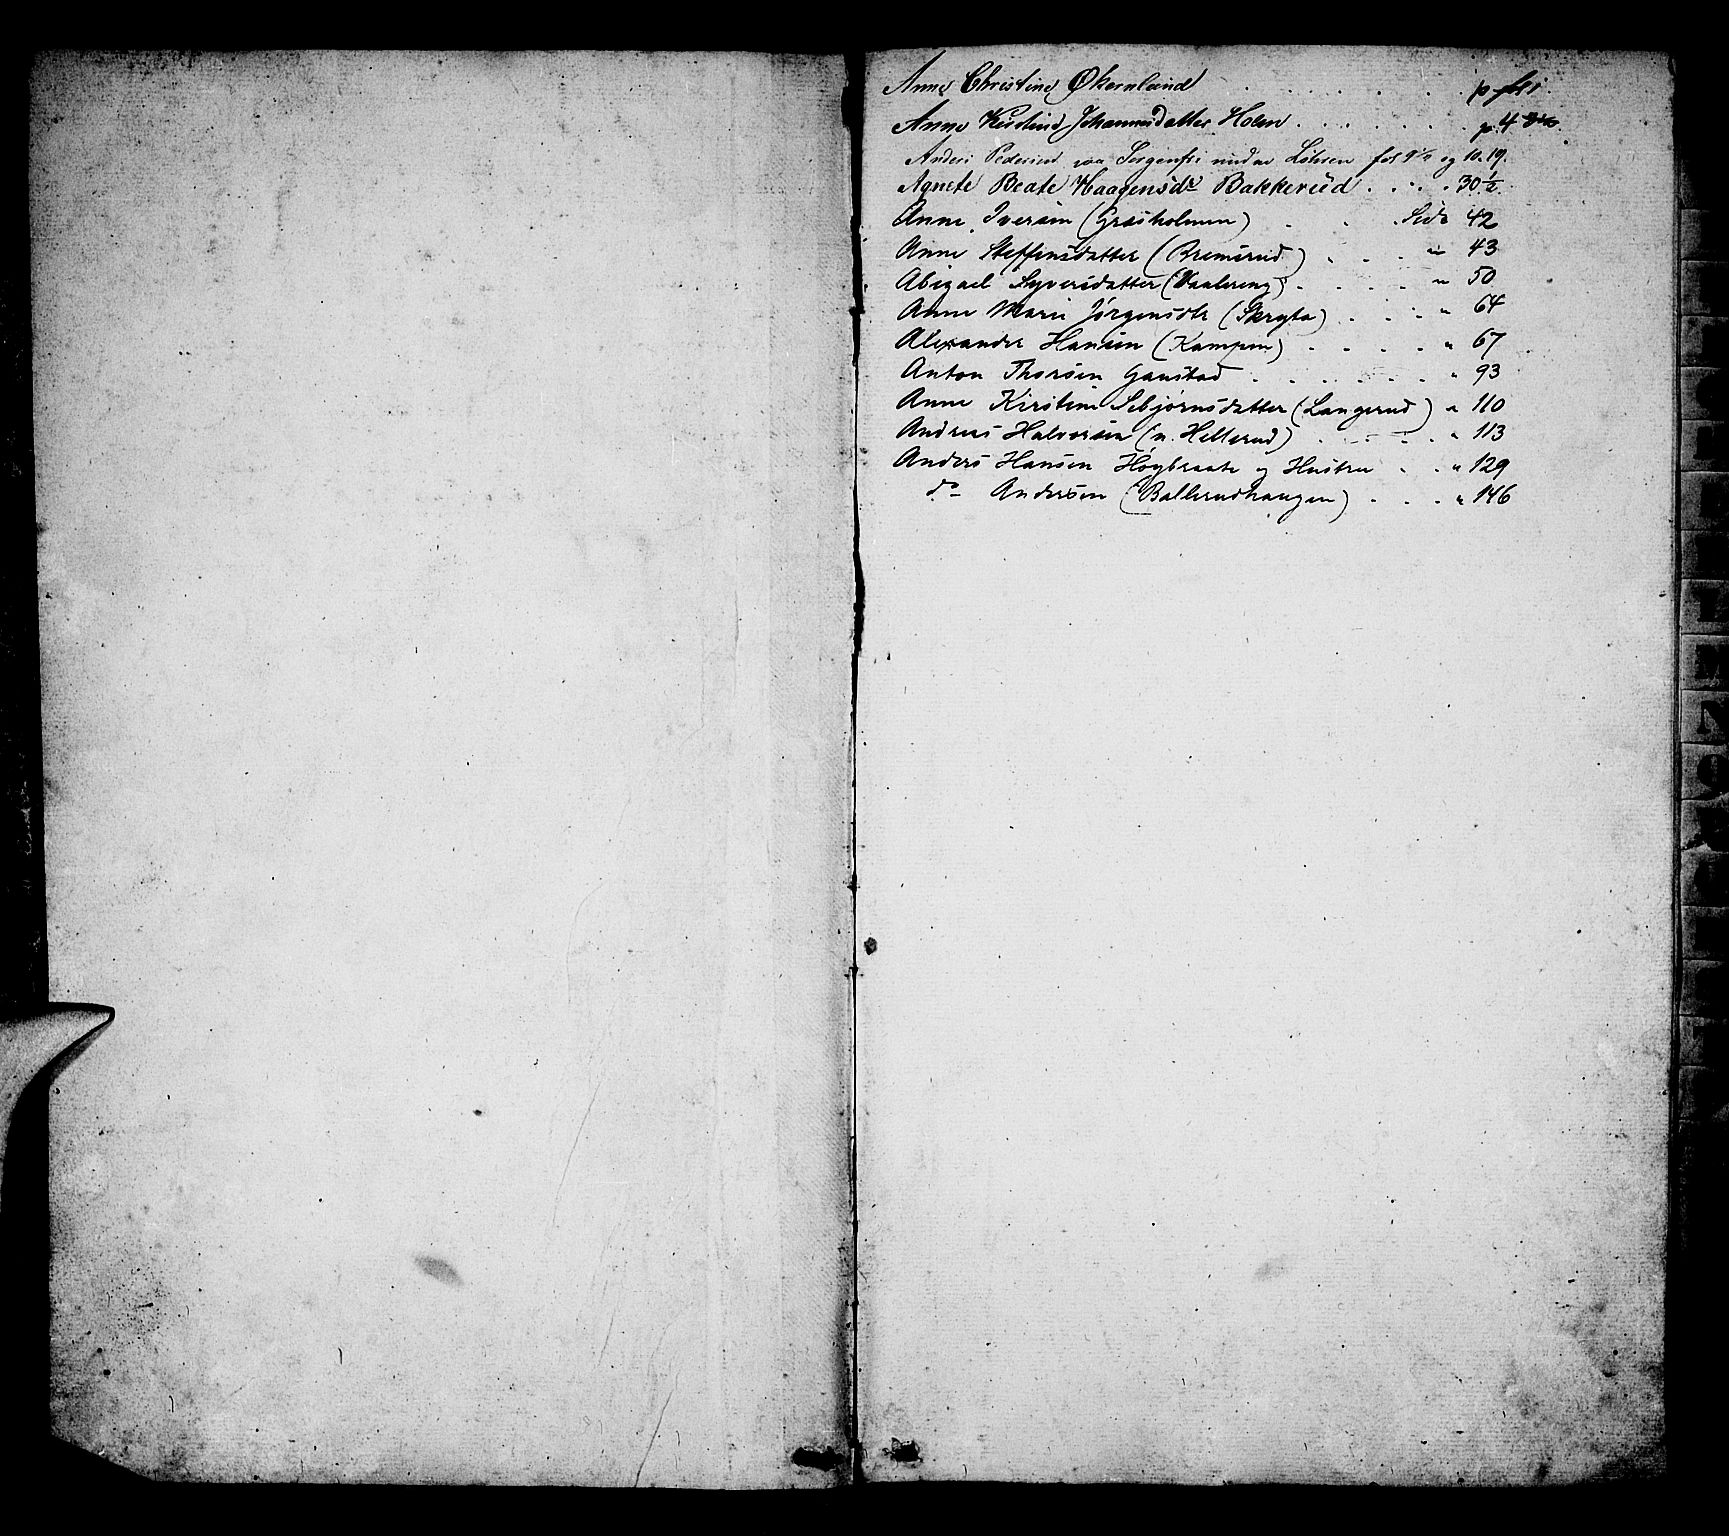 Anne Christine Økernlund . . . . . . . p. fol 1.
Anne Kirstine Johannesdatter Holm . . . . . . . p. 4
Anders Pedersen paa Sorgenfri under Løhren fol 9 1/2 og 10. 19.
Agnete Beate Haagensdr Bakkerud . . . . 30 1/2.
Anne Iversen (Græsholmen) . . . Side 42
Anne Steffensdatter (Bremsrud) . . . . " 43
Abigael Syversdatter (Vaalereng) . . . . " 50
Anne Marie Jørgensdtr (Skryta) . . . " 64
Alexander Hansen (Kampen) . . . . " 67
Anton Thorsen Gaustad . . . . . . " 93
Anne Kirstine Sebjørnsdatter (Langerud) " 110
Andreas Halvorsen (n. Hellerud) . . . . " 113
Anders Hansen Høybraate og Hustru . . " 129
do Andersen (Ballerudhaugen) . . . " 146